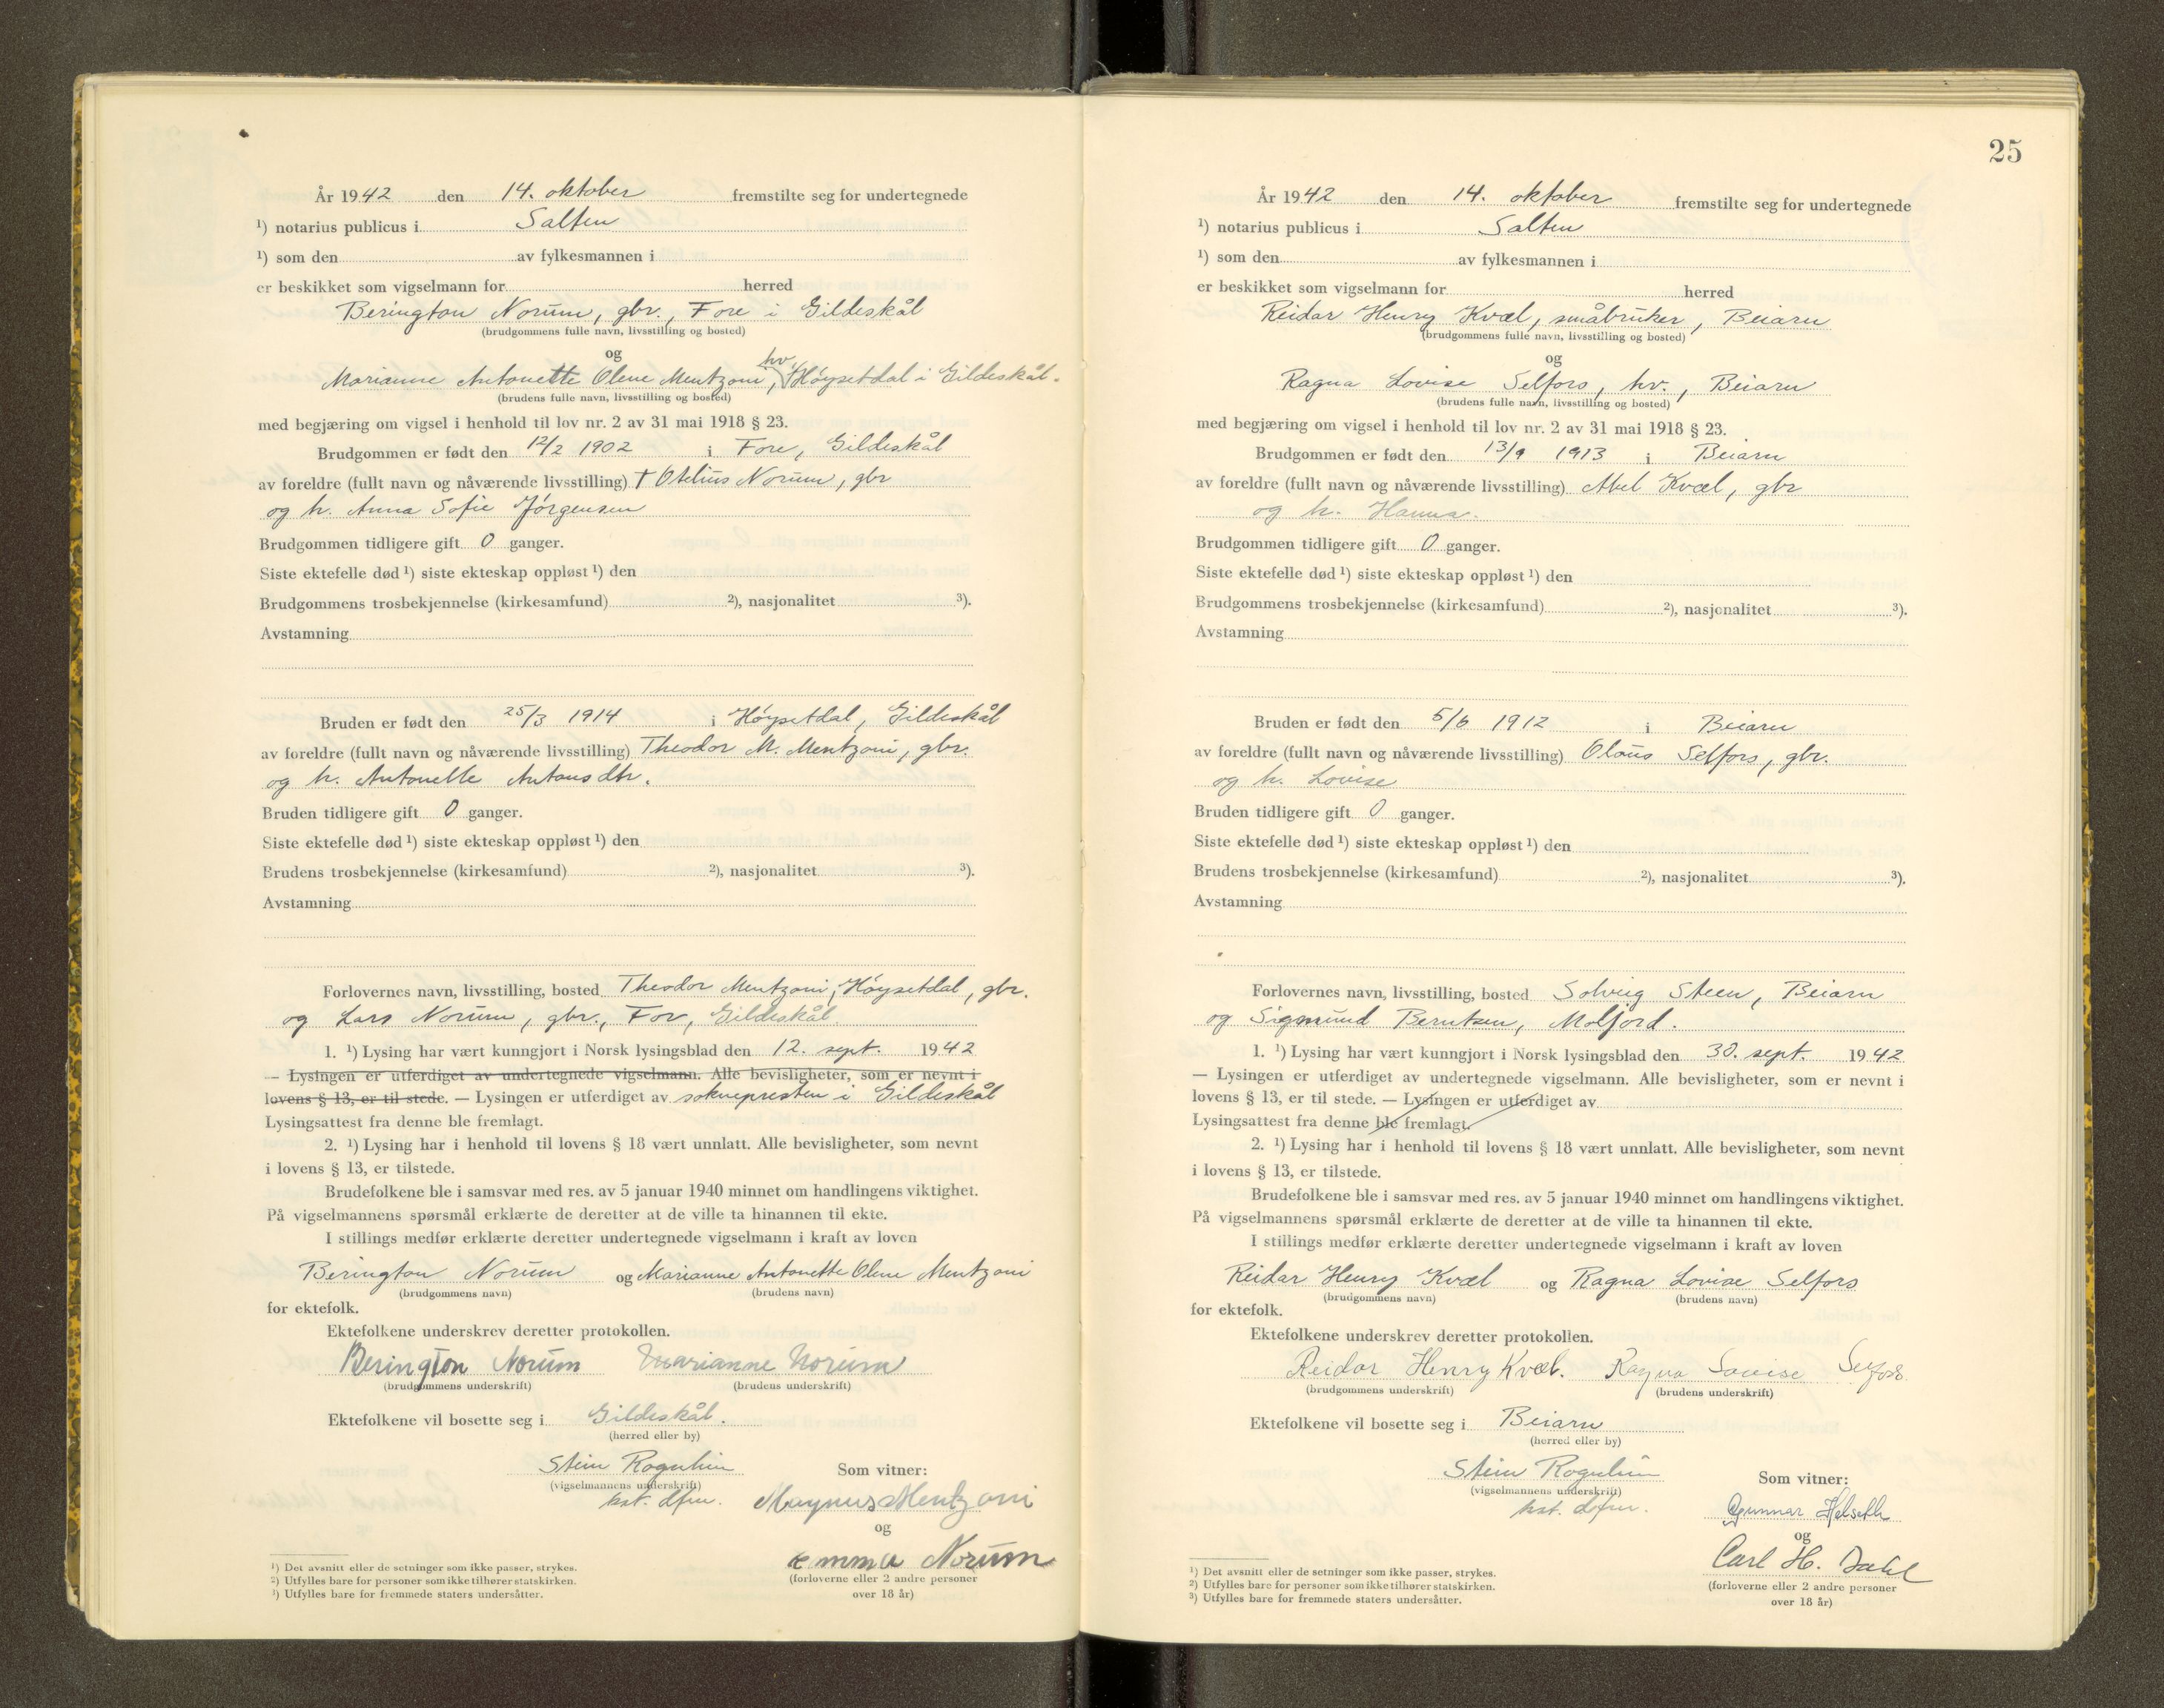 År 1942 den 14. oktober fremstilte seg for undertegnede
¹) notarius publicus i Salten
¹) som den av fylkesmannen i
er beskikket som vigselmann for herred
Berington Norum, gbr., Fore i Gildeskål
(brudgommens fulle navn, livsstilling og bosted)
og
Marianne Antonette Olene Mentzoni, hv., Høysetdal i Gildeskål.
(brudens fulle navn, livsstilling og bosted)
med begjæring om vigsel i henhold til lov nr. 2 av 31 mai 1918 § 23.
Brudgommen er født den 12/2 1902 i Fore, Gildeskål
av foreldre (fullt navn og nåværende livsstilling) † Otelius Norum, gbr
og h. Anna Sofie Jørgensen
Brudgommen tidligere gift 0 ganger.
Siste ektefelle død ¹) siste ekteskap oppløst ¹) den
Brudgommens trosbekjennelse (kirkesamfund) ²), nasjonalitet ³).
Avstamning
Bruden er født den 25/3 1914 i Høysetdal, Gildeskål
av foreldre (fullt navn og nåværende livsstilling) Theodor M. Mentzoni, gbr.
og h. Antonette Antonsdtr.
Bruden tidligere gift 0 ganger.
Siste ektefelle død ¹) siste ekteskap oppløst ¹) den
Brudens trosbekjennelse (kirkesamfund) ²), nasjonalitet ³).
Avstamning
Forlovernes navn, livsstilling, bosted Theodor Mentzoni, Høysetdal, gbr.
og Lars Norum, gbr., For, Gildeskål.
1. ¹) Lysing har vært kunngjort i Norsk lysingsblad den 12. sept. 1942
— Lysingen er utferdiget av undertegnede vigselmann. Alle bevisligheter, som er nevnt i
lovens § 13, er til stede. — Lysingen er utferdiget av soknepresten i Gildeskål
Lysingsattest fra denne ble fremlagt.
2. ¹) Lysing har i henhold til lovens § 18 vært unnlatt. Alle bevisligheter, som nevnt
i lovens § 13, er tilstede.
Brudefolkene ble i samsvar med res. av 5 januar 1940 minnet om handlingens viktighet.
På vigselmannens spørsmål erklærte de deretter at de ville ta hinannen til ekte.
I stillings medfør erklærte deretter undertegnede vigselmann i kraft av loven
Berington Norum og Marianne Antonette Olene Mentzoni
(brudgommens navn) (brudens navn)
for ektefolk.
Ektefolkene underskrev deretter protokollen.
Berington Norum Marianne Norum
(brudgommens underskrift) (brudens underskrift)
Ektefolkene vil bosette seg i Gildeskål.
(herred eller by)
Stein Rognlien Som vitner:
(vigselmannens underskrift)
kst. dfm. Magnus Mentzoni
og
Emma Norum
(forloverne eller 2 andre personer
over 18 år)
¹) Det avsnitt eller de setninger som ikke passer, strykes.
²) Utfylles bare for personer som ikke tilhører statskirken.
³) Utfylles bare for fremmede staters undersåtter.
25
År 1942 den 14. oktober fremstilte seg for undertegnede
¹) notarius publicus i Salten
¹) som den av fylkesmannen i
er beskikket som vigselmann for herred
Reidar Henry Kvæl, småbruker, Beiarn
(brudgommens fulle navn, livsstilling og bosted)
og
Ragna Lovise Selfors, hv., Beiarn
(brudens fulle navn, livsstilling og bosted)
med begjæring om vigsel i henhold til lov nr. 2 av 31 mai 1918 § 23.
Brudgommen er født den 13/9 1913 i Beiarn
av foreldre (fullt navn og nåværende livsstilling) Abel Kvæl, gbr
og h. Hanna.
Brudgommen tidligere gift 0 ganger.
Siste ektefelle død ¹) siste ekteskap oppløst ¹) den
Brudgommens trosbekjennelse (kirkesamfund) ²), nasjonalitet ³).
Avstamning
Bruden er født den 5/6 1912 i Beiarn
av foreldre (fullt navn og nåværende livsstilling) Olaus Selfors, gbr.
og h. Lovise
Bruden tidligere gift 0 ganger.
Siste ektefelle død ¹) siste ekteskap oppløst ¹) den
Brudens trosbekjennelse (kirkesamfund) ²), nasjonalitet ³).
Avstamning
Forlovernes navn, livsstilling, bosted Solveig Steen, Beiarn
og Sigmund Berntsen, Molfjord.
1. ¹) Lysing har vært kunngjort i Norsk lysingsblad den 30. sept. 1942
— Lysingen er utferdiget av undertegnede vigselmann. Alle bevisligheter, som er nevnt i
lovens § 13, er til stede. — Lysingen er utferdiget av
Lysingsattest fra denne ble fremlagt.
2. ¹) Lysing har i henhold til lovens § 18 vært unnlatt. Alle bevisligheter, som nevnt
i lovens § 13, er tilstede.
Brudefolkene ble i samsvar med res. av 5 januar 1940 minnet om handlingens viktighet.
På vigselmannens spørsmål erklærte de deretter at de ville ta hinannen til ekte.
I stillings medfør erklærte deretter undertegnede vigselmann i kraft av loven
Reidar Henry Kvæl og Ragna Lovise Selfors
(brudgommens navn) (brudens navn)
for ektefolk.
Ektefolkene underskrev deretter protokollen.
Reidar Henry Kvæl. Ragna Lovise Selfors
(brudgommens underskrift) (brudens underskrift)
Ektefolkene vil bosette seg i Beiarn
(herred eller by)
Stein Rognlien Som vitner:
(vigselmannens underskrift)
kst. dfm. Gunnar Helseth
og
Carl H. Dahl
(forloverne eller 2 andre personer
over 18 år)
¹) Det avsnitt eller de setninger som ikke passer, strykes.
²) Utfylles bare for personer som ikke tilhører statskirken.
³) Utfylles bare for fremmede staters undersåtter.